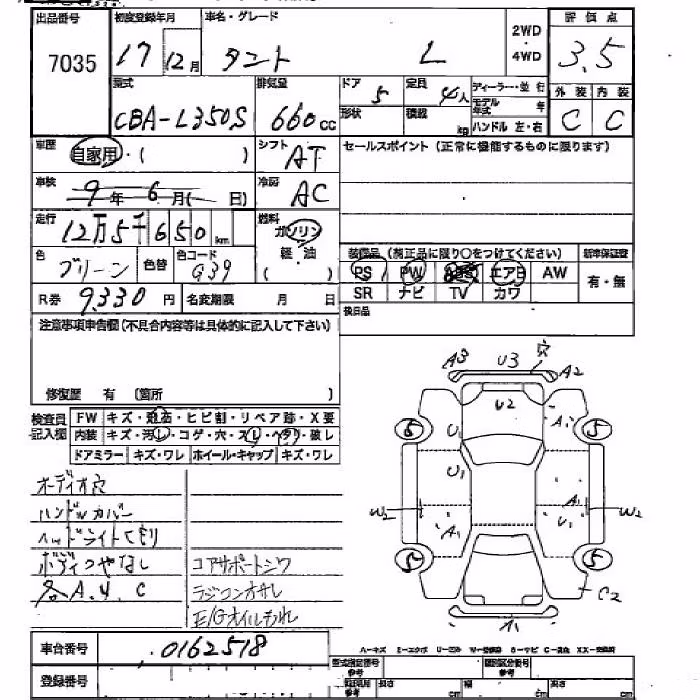 出品番号 初度登録年月 車名・グレード 2WD・4WD 評価点
7035 17年12月 タント L 3.5
型式 排気量 ドア 5 定員 4人 ディーラー・並行 外装 内装
CBA-L350S 660cc 形状 積載 kg モデル年式 年 C C
ハンドル 左・右
車歴 自家用・( ) シフト AT セールスポイント(正常に機能するものに限ります)
車検 9年6月( 日) 冷房 AC
走行 12万5千650km 燃料 ガソリン
軽油
( )
装備品(純正品に限り○をつけてください) 新車保証書
色 グリーン 色替 色コード G39 PS PW ABS エアB AW 有・無
R券 9330円 名変期限 月 日 SR ナビ TV カワ
注意事項申告欄(不具合内容等は具体的に記入して下さい) 後日品
修復歴 有 (箇所 )
検査員記入欄 FW キズ・飛石・ヒビ割・リペア跡・X要
内装 キズ・汚れ・コゲ・穴・スレ・ヘタリ・破レ
ドアミラー キズ・ワレ ホイール・キャップ キズ・ワレ
オーディオ穴
ハンドルカバー
ヘッドライトくもり
ボディつやなし コアサポートシワ
各A.U.C ラジコンオサレ
E/Gオイルもれ
A3 U3 穴 A2
U2
5 U1 A1 5
U1 A1
W2 A1 U1 W2
5 5
C2
車台番号 0162518
登録番号
A=キズ E=エクボ U=凹み W=補修跡 S=サビ C=腐食 XX=交換済
型式指定番号 参考 類別区分番号 参考
長さ cm 幅 cm 高さ cm